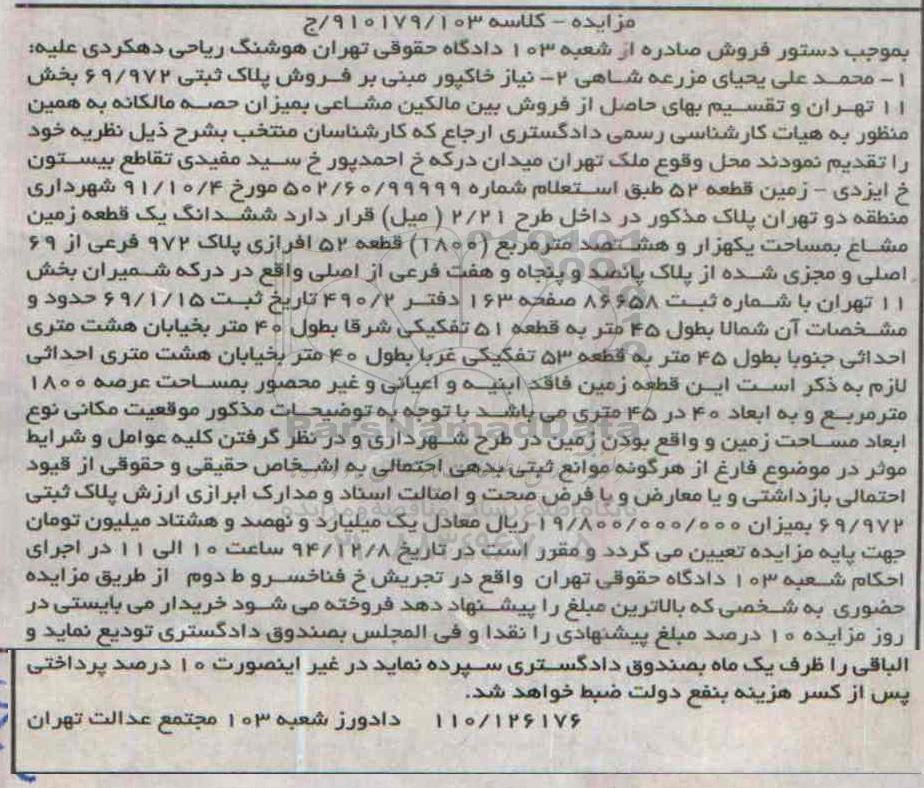 مزایده - کلاسه ۹۱۰۱۷۹/۱۰۳/ج
بموجب دستور فروش صادره از شعبه ۱۰۳ دادگاه حقوقی تهران هوشنگ ریاحی دهکردی علیه:
۱- محمد علی یحیای مزرعه شاهی ۲- نیاز خاکپور مبنی بر فروش پلاک ثبتی ۶۹/۹۷۲ بخش
۱۱ تهران و تقسیم بهای حاصل از فروش بین مالکین مشاعی بمیزان حصه مالکانه به همین
منظور به هیات کارشناسی رسمی دادگستری ارجاع که کارشناسان منتخب بشرح ذیل نظریه خود
را تقدیم نمودند محل وقوع ملک تهران میدان درکه خ احمدپور خ سید مفیدی تقاطع بیستون
خ ایزدی - زمین قطعه ۵۲ طبق استعلام شماره ۵۰۲/۶۰/۹۹۹۹۹ مورخ ۹۱/۱۰/۴ شهرداری
منطقه دو تهران پلاک مذکور در داخل طرح ۲/۲۱ ( میل) قرار دارد ششدانگ یک قطعه زمین
مشاع بمساحت یکهزار و هشتصد مترمربع (۱۸۰۰) قطعه ۵۲ افرازی پلاک ۹۷۲ فرعی از ۶۹
اصلی و مجزی شده از پلاک پانصد و پنجاه و هفت فرعی از اصلی واقع در درکه شمیران بخش
۱۱ تهران با شماره ثبت ۸۶۶۵۸ صفحه ۱۶۳ دفتر ۴۹۰/۲ تاریخ ثبت ۶۹/۱/۱۵ حدود و
مشخصات آن شمالا بطول ۴۵ متر به قطعه ۵۱ تفکیکی شرقا بطول ۴۰ متر بخیابان هشت متری
احداثی جنوبا بطول ۴۵ متر به قطعه ۵۳ تفکیکی غربا بطول ۴۰ متر بخیابان هشت متری احداثی
لازم به ذکر است این قطعه زمین فاقد ابنیه و اعیانی و غیر محصور بمساحت عرصه ۱۸۰۰
مترمربع و به ابعاد ۴۰ در ۴۵ متری می باشد با توجه به توضیحات مذکور موقعیت مکانی نوع
ابعاد مساحت زمین و واقع بودن زمین در طرح شهرداری و در نظر گرفتن کلیه عوامل و شرایط
موثر در موضوع فارغ از هرگونه موانع ثبتی بدهی احتمالی به اشخاص حقیقی و حقوقی از قیود
احتمالی بازداشتی و یا معارض و با فرض صحت و اصالت اسناد و مدارک ابرازی ارزش پلاک ثبتی
۶۹/۹۷۲ بمیزان ۱۹/۸۰۰/۰۰۰/۰۰۰ ریال معادل یک میلیارد و نهصد و هشتاد میلیون تومان
جهت پایه مزایده تعیین می گردد و مقرر است در تاریخ ۹۴/۱۲/۸ ساعت ۱۰ الی ۱۱ در اجرای
احکام شعبه ۱۰۳ دادگاه حقوقی تهران واقع در تجریش خ فناخسرو ط دوم از طریق مزایده
حضوری به شخصی که بالاترین مبلغ را پیشنهاد دهد فروخته می شود خریدار می بایستی در
روز مزایده ۱۰ درصد مبلغ پیشنهادی را نقدا و فی المجلس بصندوق دادگستری تودیع نماید و
الباقی را ظرف یک ماه بصندوق دادگستری سپرده نماید در غیر اینصورت ۱۰ درصد پرداختی
پس از کسر هزینه بنفع دولت ضبط خواهد شد.
۱۱۰/۱۲۶۱۷۶ دادورز شعبه ۱۰۳ مجتمع عدالت تهران
ParsNamadData